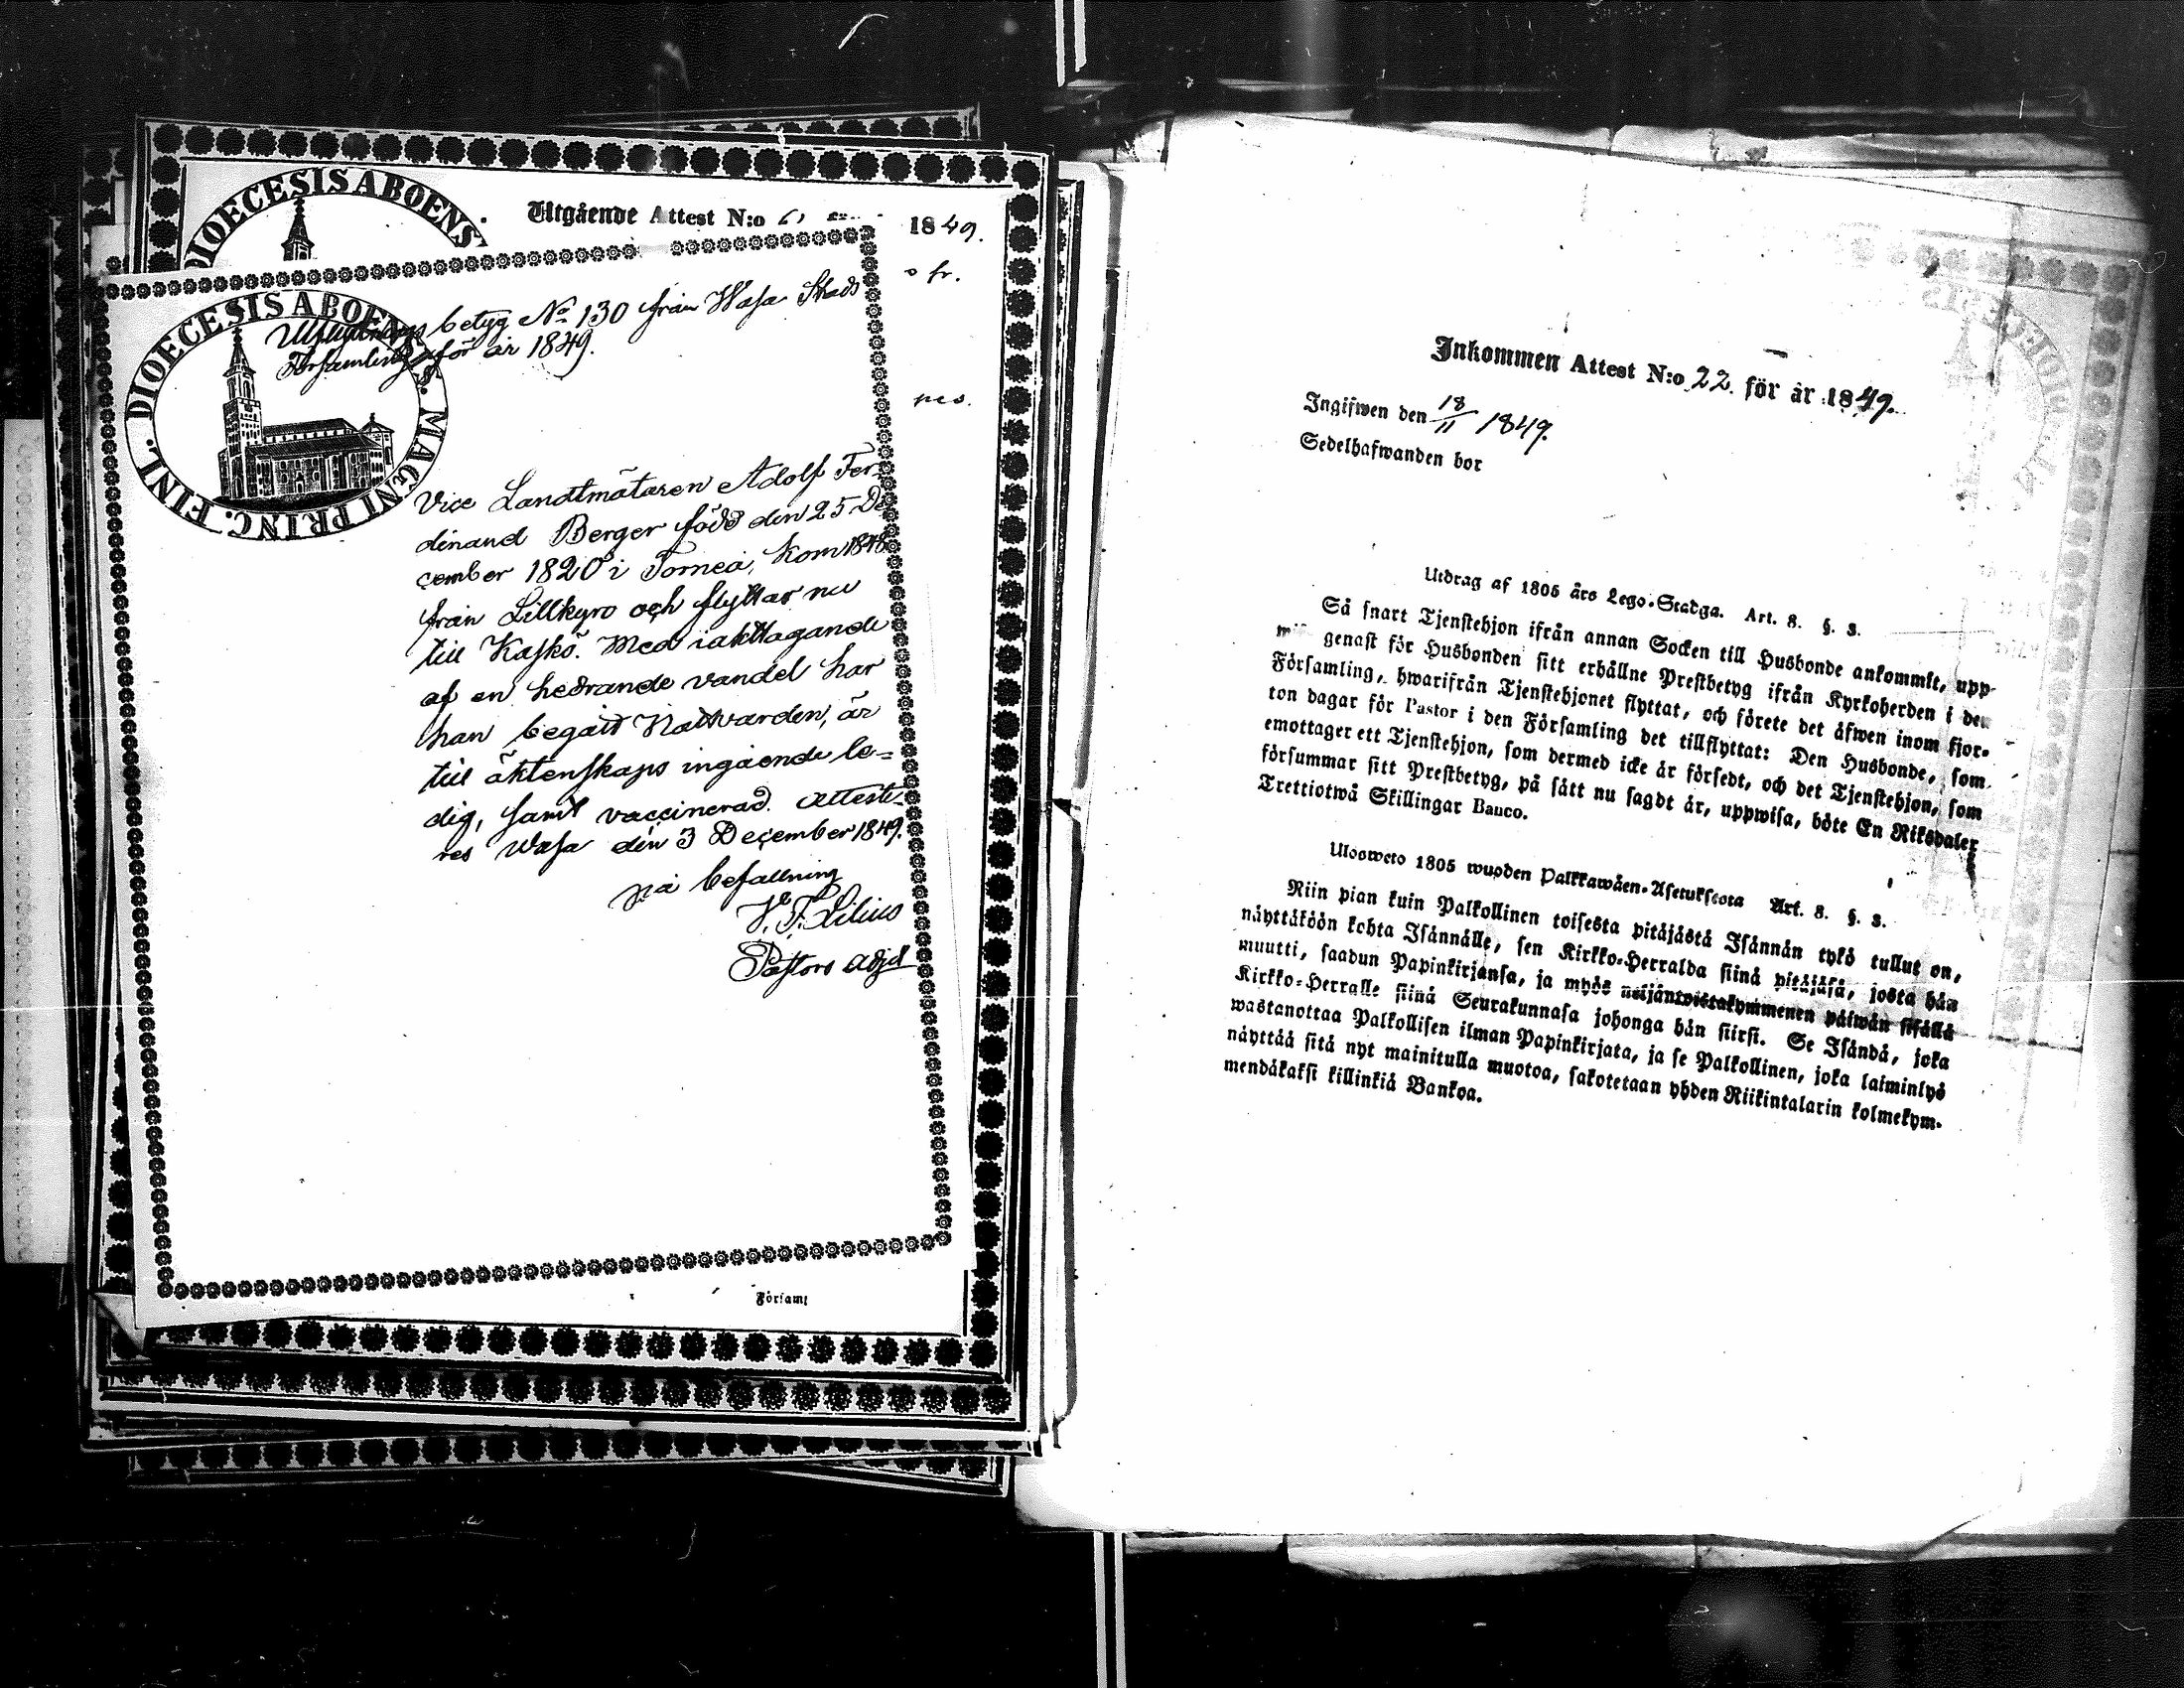 DIOECESIS ABOENS
Utgående Attest N:o 1849.
o fr.
DIOECESIS ABOENS. MAGNI PRINC. FINL.
Utflyttnings betyg No 130 från Wasa Stads
Församling för år 1849.
Vice Landtmätaren Adolf Fer-
dinand Berger född den 25 De
cember 1820 i Torneå, kom 1848
från Lillkyro och flyttar nu
till Kaskö. Med iakttagande
af en hedrande vandel har
han begått Nattvarden, är
till äktenskaps ingående le=
dig, samt vaccinerad. Atteste-
res Wasa den 3 December 1849.
på befallning
Lilius
Pastors adj
Församl
Inkommen Attest N:o 22 för år 1849.
Ingifwen den 18/11 1849.
Sedelhafwanden bor
Utdrag af 1805 års Lego-Stadga. Art. 8. §. 3.
Så snart Tjenstehjon ifrån annan Socken till Husbonde ankommit, upp-
genast för Husbonden sitt erhållne Prestbetyg ifrån Kyrkoherden i den
Församling, hwarifrån Tjenstehjonet flyttat, och förete det äfwen inom fjor-
ton dagar för Pastor i den Församling det tillflyttat: Den Husbonde, som
emottager ett Tjenstehjon, som dermed icke är försedt, och det Tjenstehjon, som
försummar sitt Prestbetyg, på sätt nu sagdt är, uppwisa, böte En Riksdaler
Trettiotwå Skillingar Banco.
Ulosweto 1805 wuoden Palkkawäen-Asetuksesta Art. 8. §. 3.
Niin pian kuin Palkollinen toisesta pitäjästä Isännän tykö tullut on,
näyttäköön kohta Isännälle, sen Kirkko-Herralda siinä pitäjäsä, josta hän
muutti, saadun Papinkirjansa, ja myös neljäntoistakymmenen päiwän sisällä
Kirkko-Herralle siinä Seurakunnasa johonga hän siirsi. Se Isändä, joka
wastanottaa Palkollisen ilman Papinkirjata, ja se Palkollinen, joka laiminlyö
näyttää sitä nyt mainitulla muotoa, sakotetaan yhden Riikintalarin kolmekym-
mendäkaksi killinkiä Bankoa.